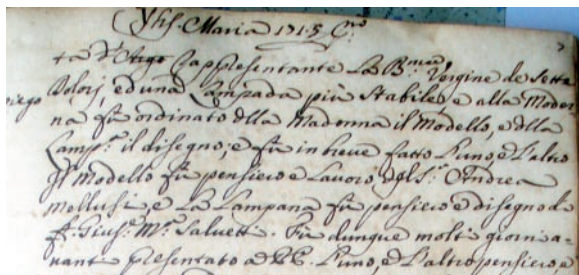 Yhs. Maria 1715
ta d'Argo rappresentante La B.ma Vergine de Sette
Dolorj, ed una Lampada più stabile, e alla Moder-
na fù ordinato della Madonna il Modello, e della
Lamp.a il disegno; e fù in breve fatto l'uno, e l'altro
Il modello fù pensiero e Lavoro del S.r Andrea
Mellusi e La Lampana fù pensiero e disegno di
f. Gius.e M.a Saluetti. Fù dunque molti giorni a-
vanti presentato a l'uno, e l'altro pensiero, e